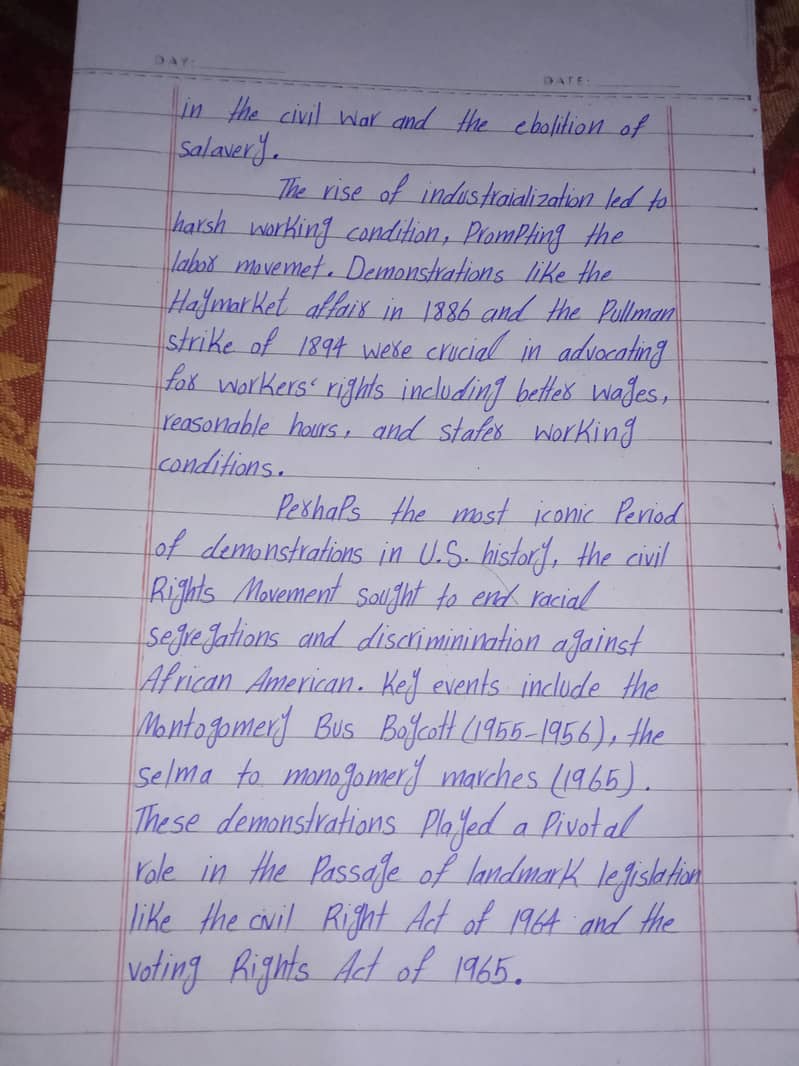 DAY:
DATE:
in the civil war and the ebolition of
salavery.
The rise of industraialization led to
harsh working condition, Prompting the
labor movemet. Demonstrations like the
Haymarket affair in 1886 and the Pullman
strike of 1894 were crucial in advocating
for workers' rights including better wages,
reasonable hours, and stafer working
conditions.
Perhaps the most iconic Period
of demonstrations in U.S. history, the civil
Rights Movement sought to end racial
segregations and discriminination against
African American. Key events include the
Montogomery Bus Boycott (1955-1956), the
selma to monogomery marches (1965).
These demonstrations Played a Pivotal
role in the Passage of landmark legislation
like the civil Right Act of 1964 and the
voting Rights Act of 1965.